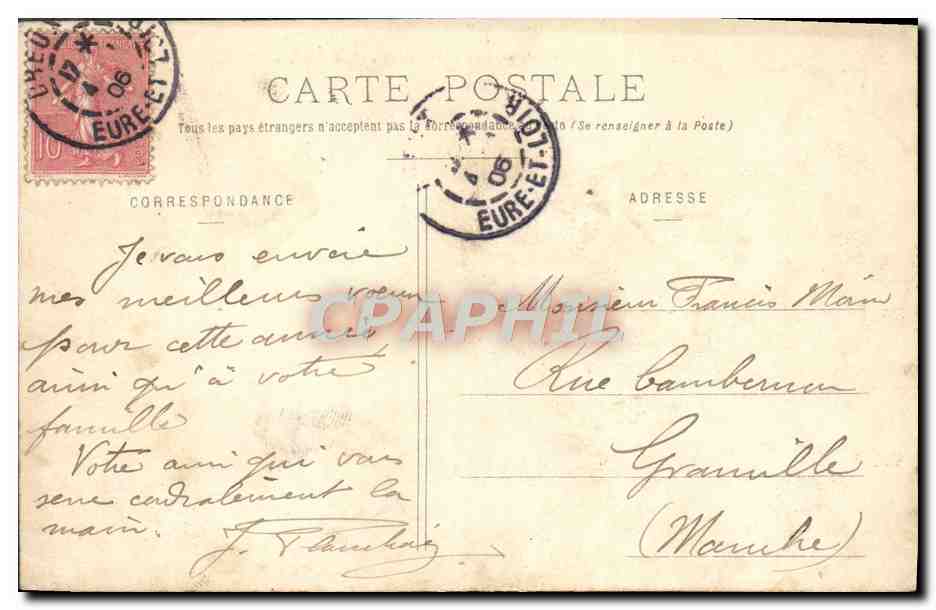 CARTE POSTALE
Tous les pays étrangers n'acceptent pas la Correspondance au recto (Se renseigner à la Poste)
CORRESPONDANCE
Je vous envoie
mes meilleurs voeux
pour cette année
ainsi qu'à votre
famille
Votre ami qui vous
serre cordialement la
main.
J.
ADRESSE
Monsieur Francis
Rue Cambernon
Granville
(Manche)
10
12
4
06
EURE-ET-LOIR
4
06
EURE-ET-LOIR
CPAPHIL